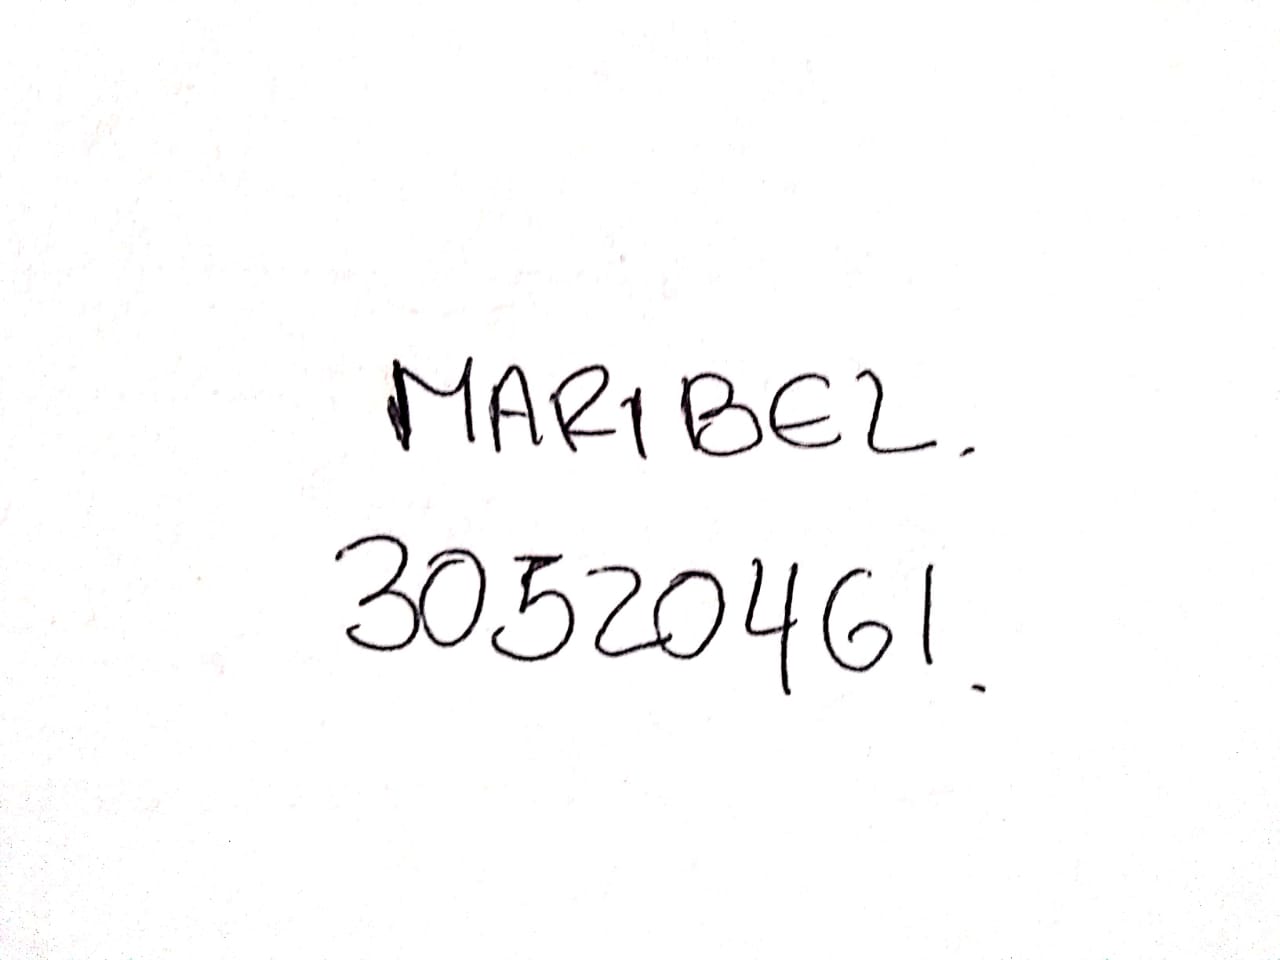 MARIBEL.
30520461.